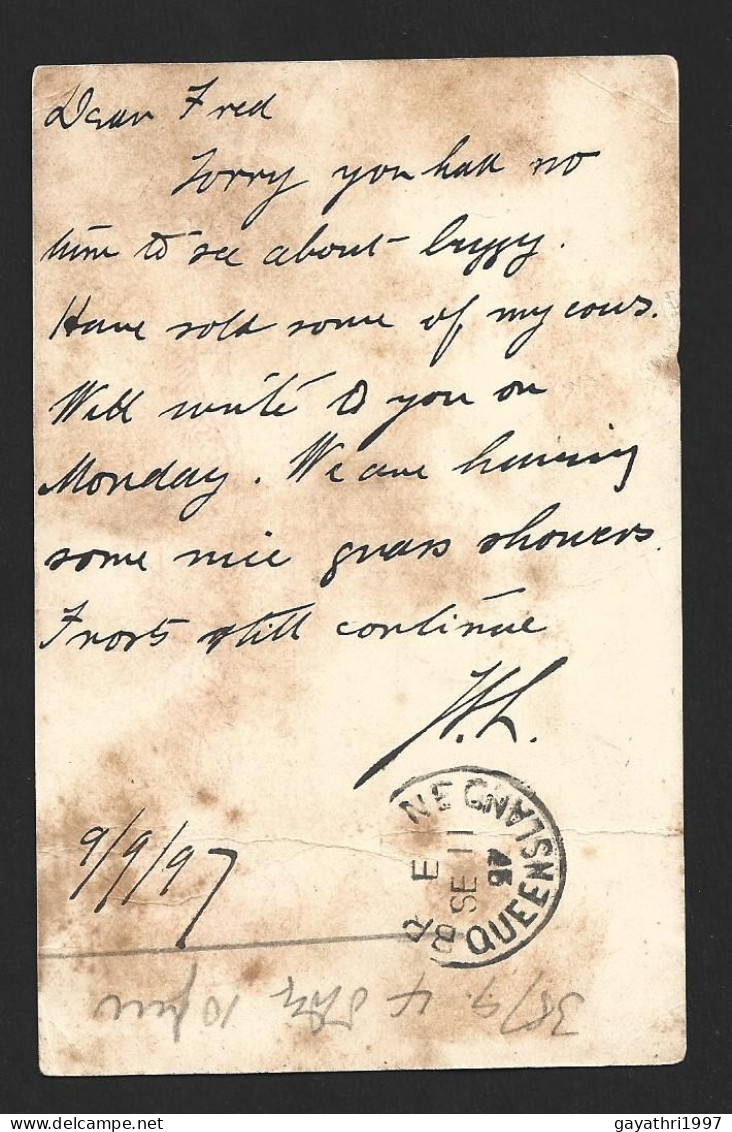 Dear Fred
Sorry you had no
time to see about buggy.
Have sold some of my cows.
Will write to you on
Monday. We are having
some nice grass showers.
Frosts still continue
H.L.
9/9/97
QUEENSLAND
E
SE 11
gayathri1997